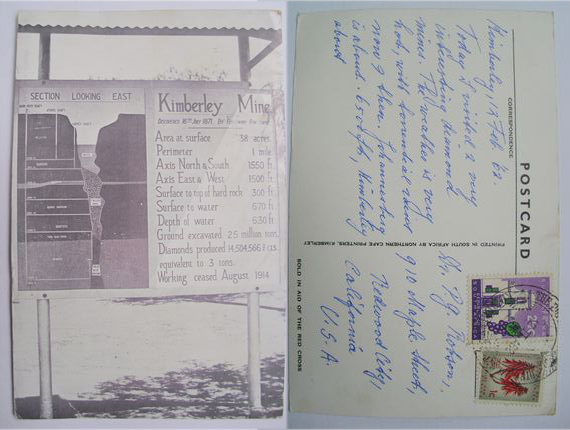 SECTION LOOKING EAST
Kimberley Mine
Discovered 16th July 1871. By
Area at surface 38 acres.
Perimeter 1 mile
Axis North & South 1550 ft.
Axis East & West 1500 ft
Surface to top of hard rock 300 ft
Surface to water 670 ft
Depth of water 630 ft
Ground excavated 25 million tons.
Diamonds produced 14,504,566
equivalent to 3 tons.
Working ceased August 1914
CORRESPONDENCE
POSTCARD
Kimberley, Feb
Today I visited a very
interesting diamond
mine. The weather is very
hot, with
now & then. Johannesburg
is about Kimberley
about
PRINTED IN SOUTH AFRICA BY NORTHERN CAPE PRINTERS, KIMBERLEY
SOLD IN AID OF THE RED CROSS
910 Maple Street,
Redwood City,
California
U.S.A.